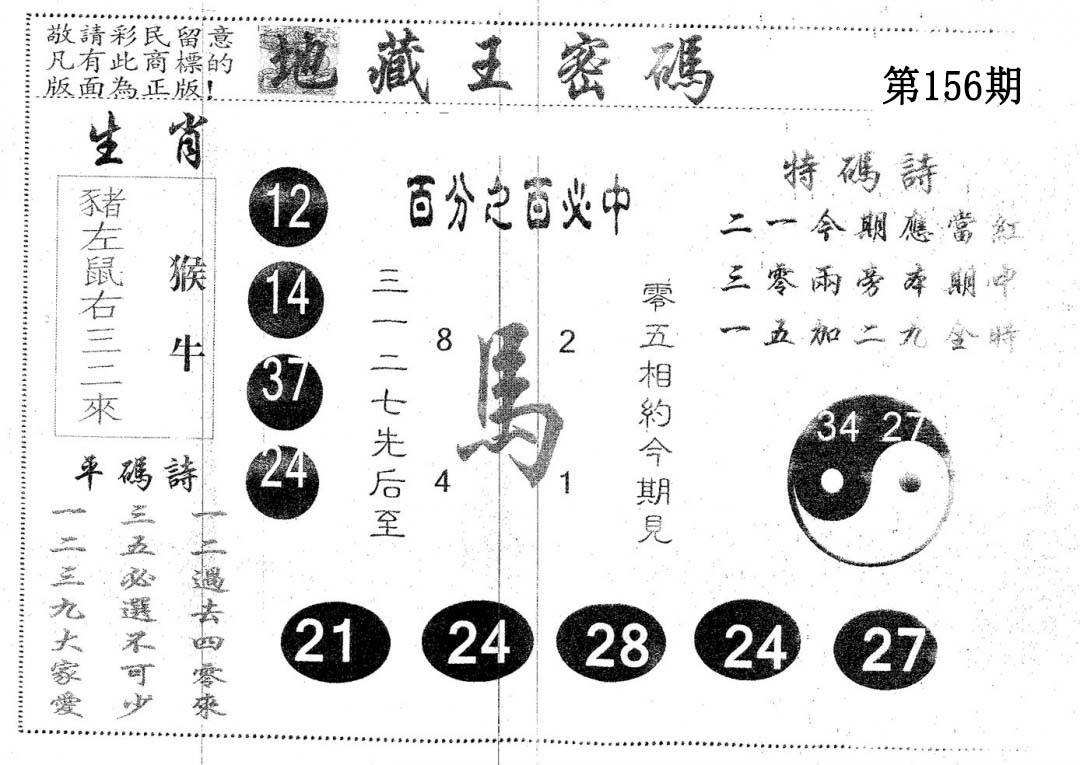 敬請彩民留意
凡有此商標的
版面為正版!
地藏王密碼
第156期
生肖
豬左鼠右三二來
猴牛
12
14
37
24
百分之百必中
三一二七先后至
8
2
馬
4
1
零五相約今期見
特碼詩
二一今期應當紅
三零兩旁本期中
一五加二九金時
34 27
平碼詩
一二遇去四零來
三五必選不可少
一二三九大家愛
21
24
28
24
27